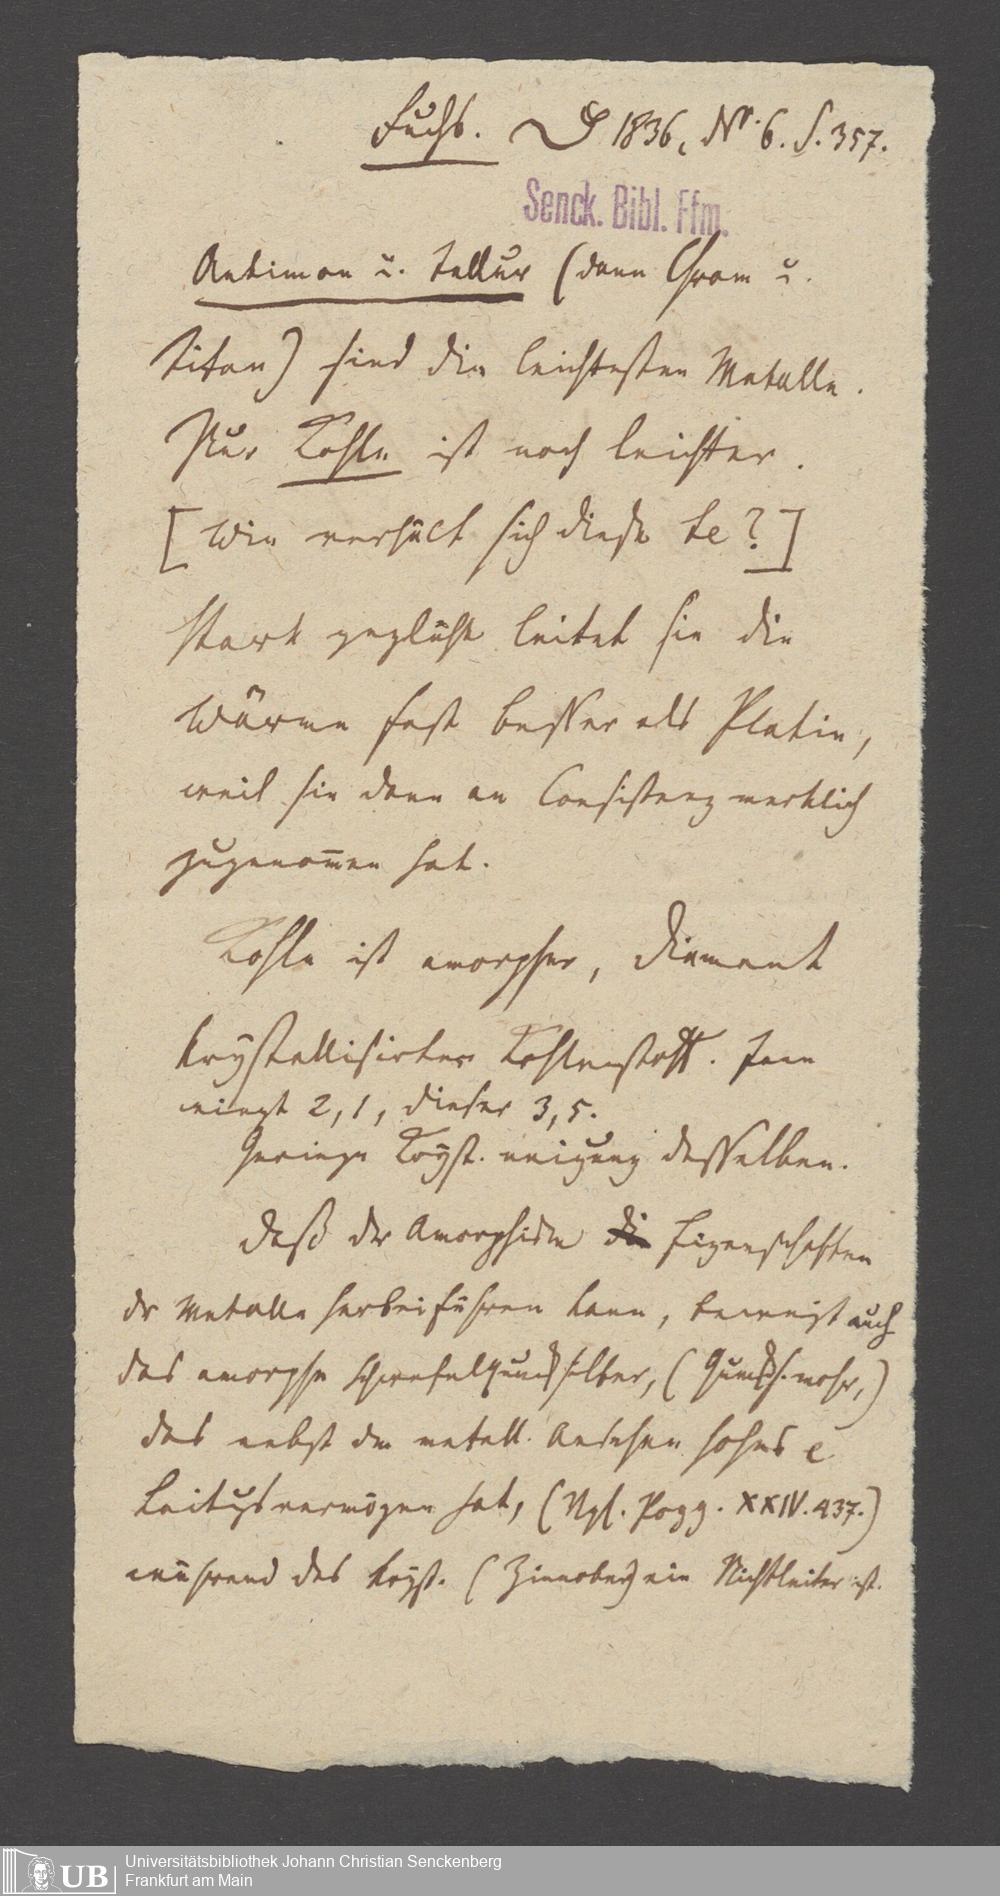 Fuchs. 1836, Nr. 6. S. 357.
Senck. Bibl. Ffm.
Antimon u. Tellur (dann Chrom u.
Titan) sind die leichtesten Metalle.
Nur Kohle ist noch leichter.
[Wie verhält sich diese te?]
Stark geglüht leitet sie die
Wärme fast besser als Platin,
weil sie dann an Consistenz merklich
zugenom̄en hat.
Kohle ist amorpher, Diamant
krystallisirter Kohlenstoff. Jene
wiegt 2,1, dieser 3,5.
Geringe Kryst. neigung desselben.
Daß der Amorphism Eigenschaften
dr Metalle herbeiführen kann, beweist auch
das amorphe Schwefelquecksilber, (Quecks. mohr,)
das nebst dem metall. Ansehen hohes e
Leitgsvermögen hat, (Vgl. Pogg. XXIV. 437.)
während das kryst. (Zinnober) ein Nichtleiter ist.
UB
Universitätsbibliothek Johann Christian Senckenberg
Frankfurt am Main